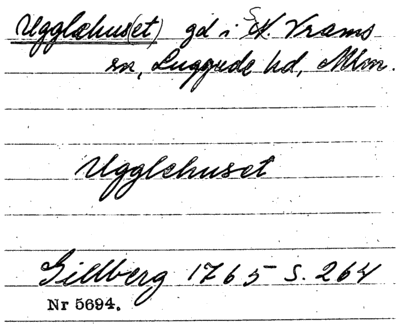 Ugglehus(et) gd i N. Vrams
sn, Luggude hd, Mlm.
Ugglehuset
Gillberg 1765 s. 264
Nr 5694.